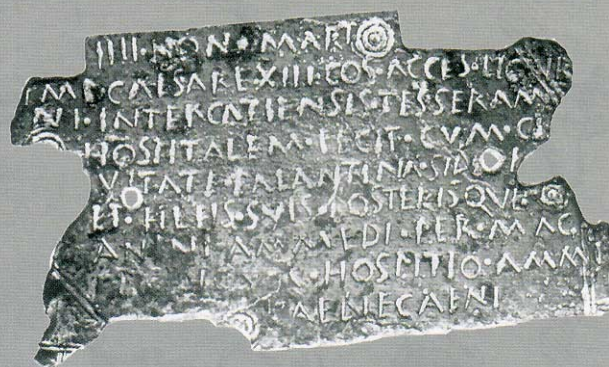 IIII·NON·MART
IMP·CAESARE XIII·COS·ACCES·
NI·INTERCATIENSIS·TESSERAM
HOSPITALEM·FECIT·CVM·CI
VITATE PALANTINA·SIBI
ET·FILIIS·SVIS POSTERISQVE·
ANENI AMMEDI·PER·MAG
HOSPITIO·AMMI
CAENECAENI